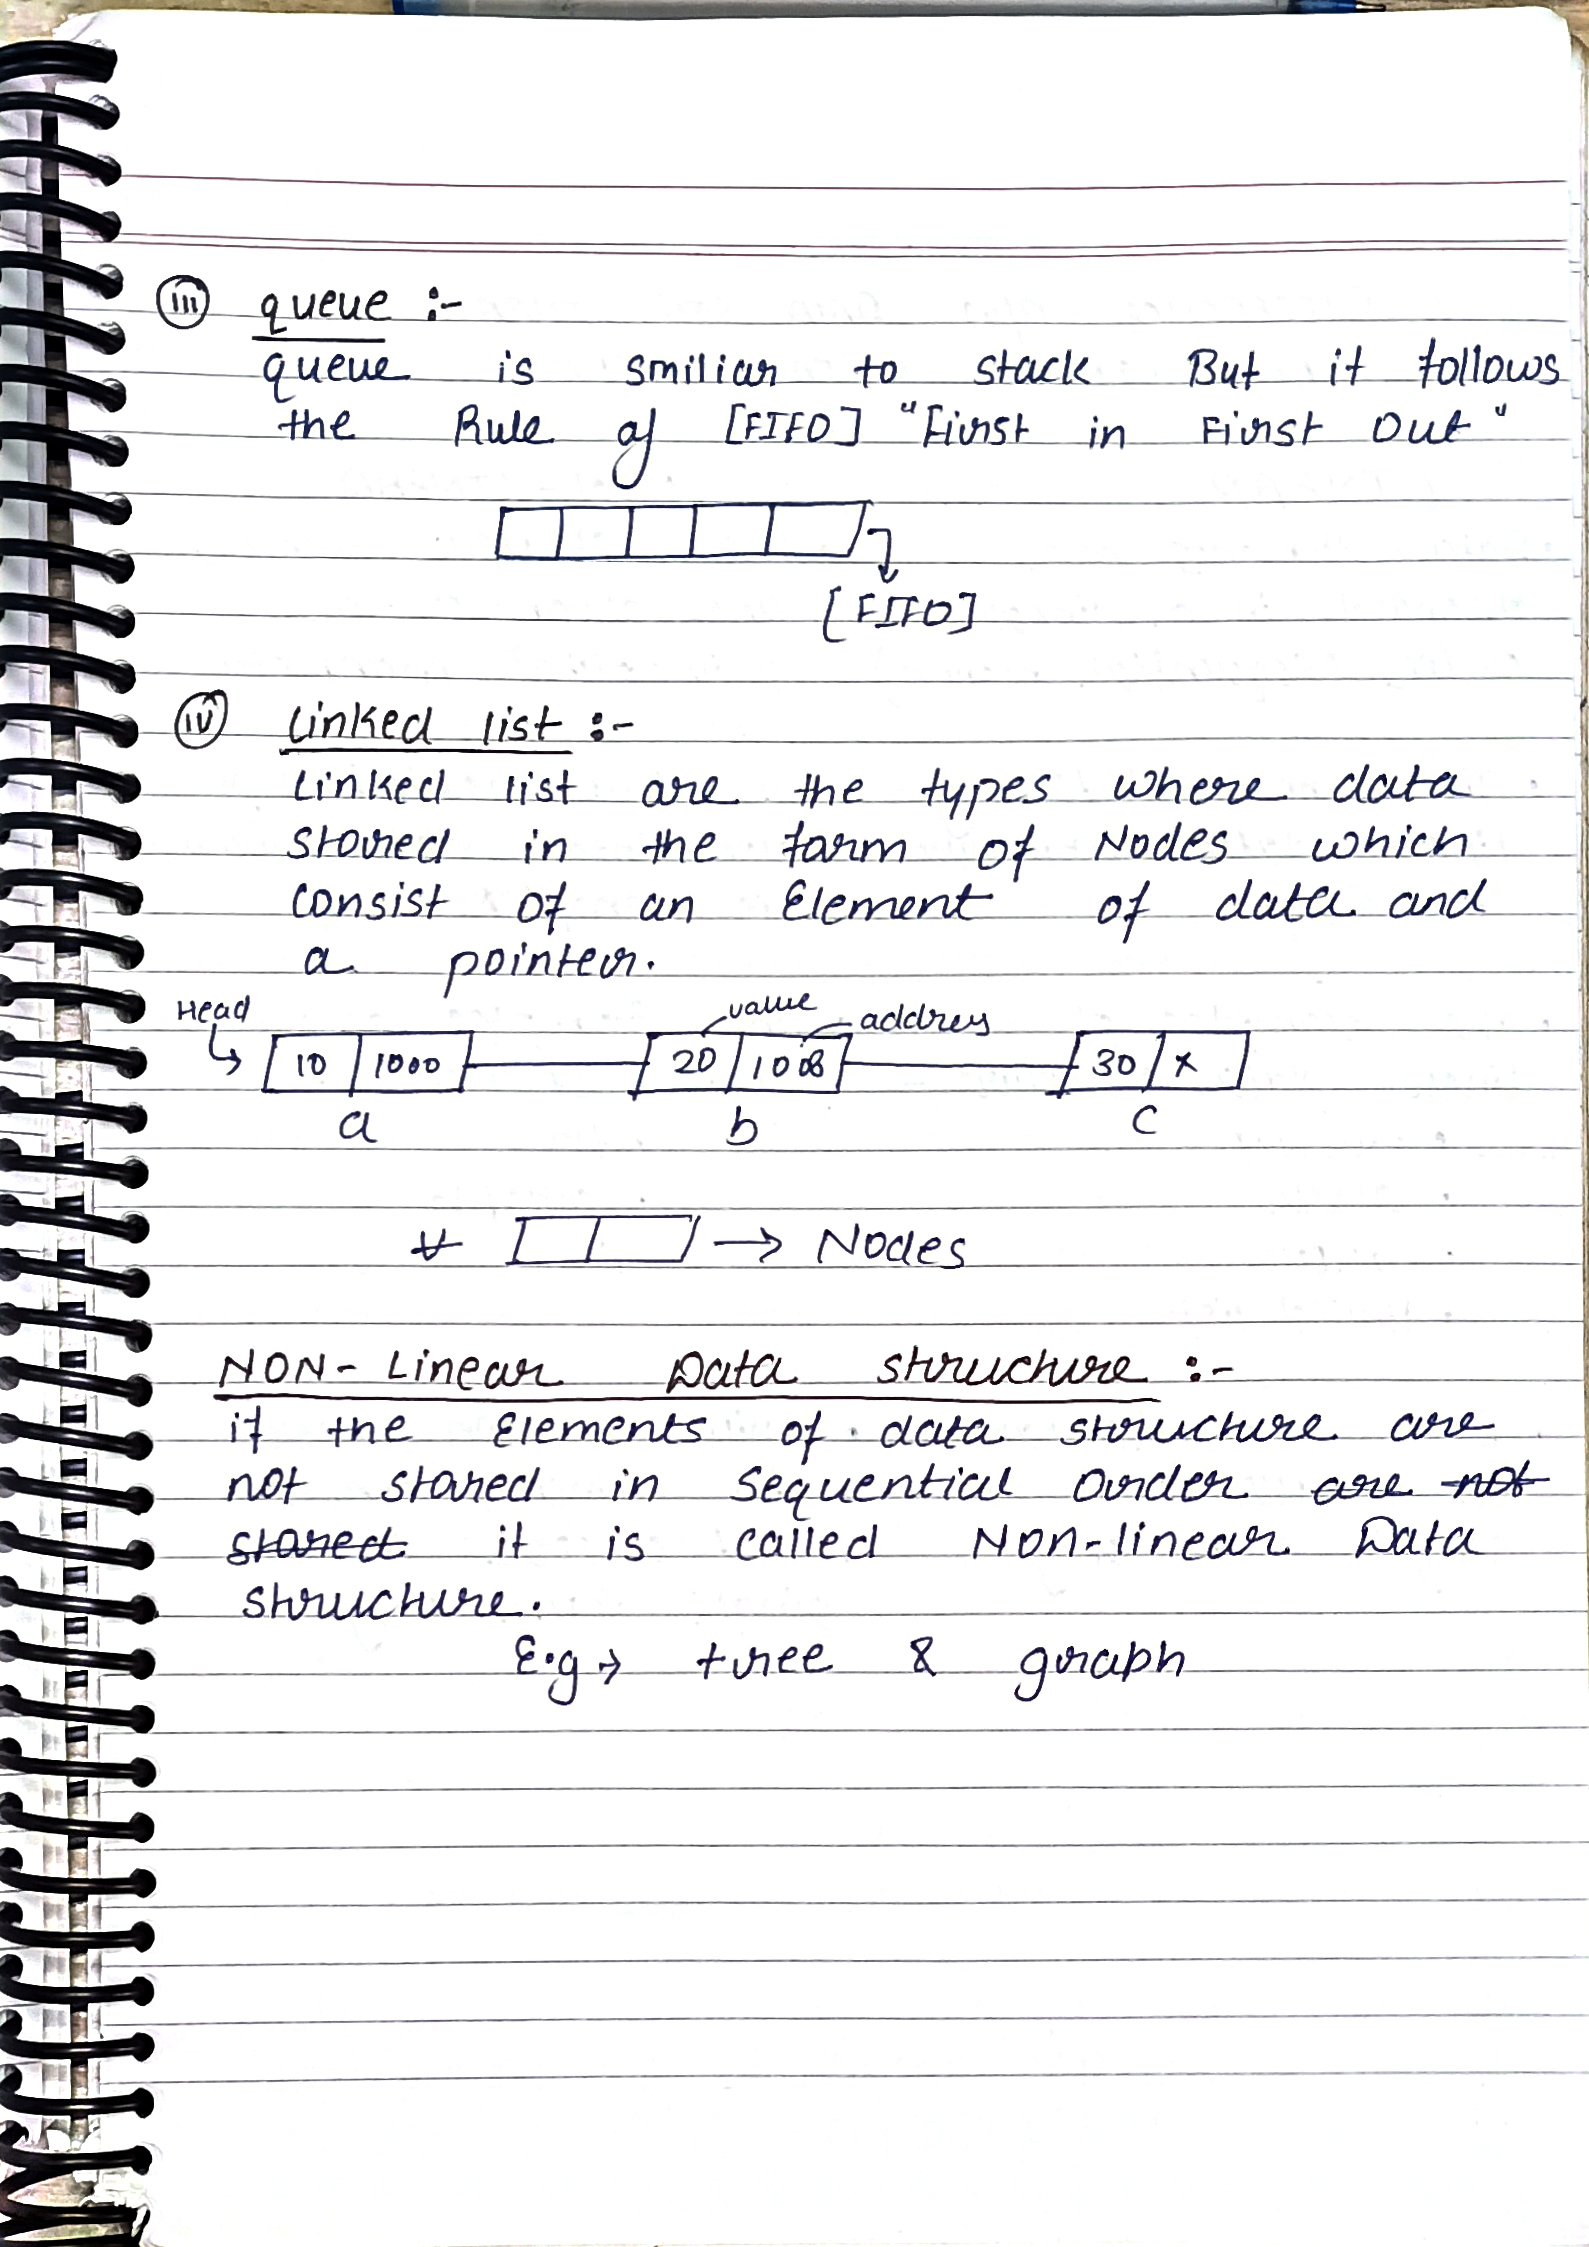 (iii) queue :-
queue is smiliar to stack But it follows
the Rule of [FIFO] "First in First Out"
[FIFO]
(iv) Linked list :-
Linked list are the types where data
stored in the form of Nodes which
consist of an Element of data and
a pointer.
Head value address
10 1000 20 1008 30 x
a b c
* → Nodes
NON-Linear Data structure :-
if the Elements of data structure are
not stored in sequential Order are not
stored it is called Non-linear Data
structure.
E.g → tree & graph